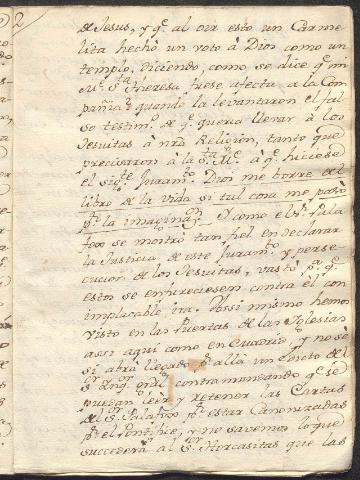 2
de Jesus, y q.e al oir esto un Carme
lita hechó un voto à Dios como un
templo, diciendo, como se dice q.e mi
M.e S.ta Theresa frese afecta, a la Com
pañia, quando la levantaron el fal
so testim.o de q.e queria llevar à los
Jesuitas à nrã Religion, tanto que
precisaron à la S.ta M.e à q.e hiciese
el sig.te Juram.to Dios me borre del
libro de la vida si tal cosa me pasò
p.r la imaginaz.n Y como el V.e Pala
fox se mostrò tan fiel en declarar
la Justicia de este Juram.to y perse
cucion de los Jesuitas, vastò p.a q.e
estos se enfureciesen contra èl con
implacable ira. Assi mismo hemos
visto en las Puertas de las Iglesias
assi aqui como en y no sè
si abrà llegado p.r allà un Edicto del
S.or Inq.or gral contramandando q.e se
puedan leèr y retener las Cartas
del S.or Palafox p.r estar Canonizadas
p.r el Pontifice, y no savemos lo que
succederà al S.or Horcasitas que las